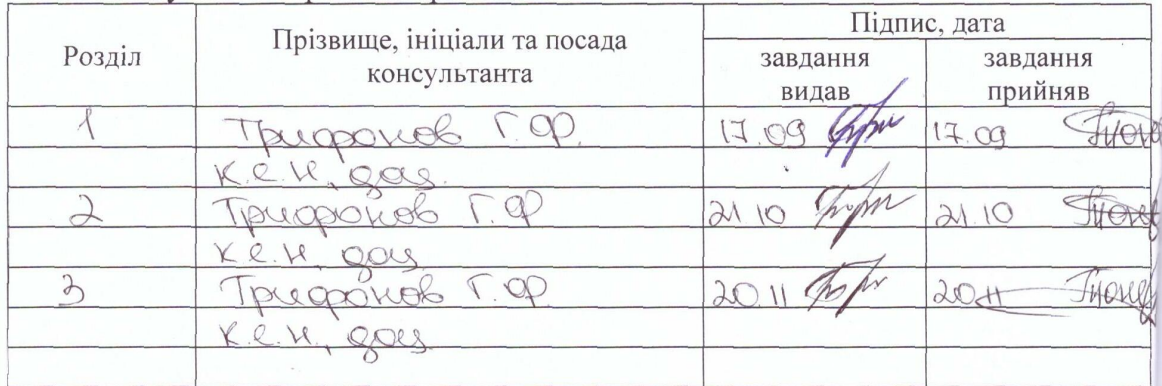 Розділ
Прізвище, ініціали та посада
консультанта
Підпис, дата
завдання
видав
завдання
прийняв
1 Трифонов Г.Ф. 17.09 17.09
к.е.н., доц.
2 Трифонов Г.Ф 21.10 21.10
к.е.н, доц
3 Трифонов Г.Ф 20.11 20.11
к.е.н., доц